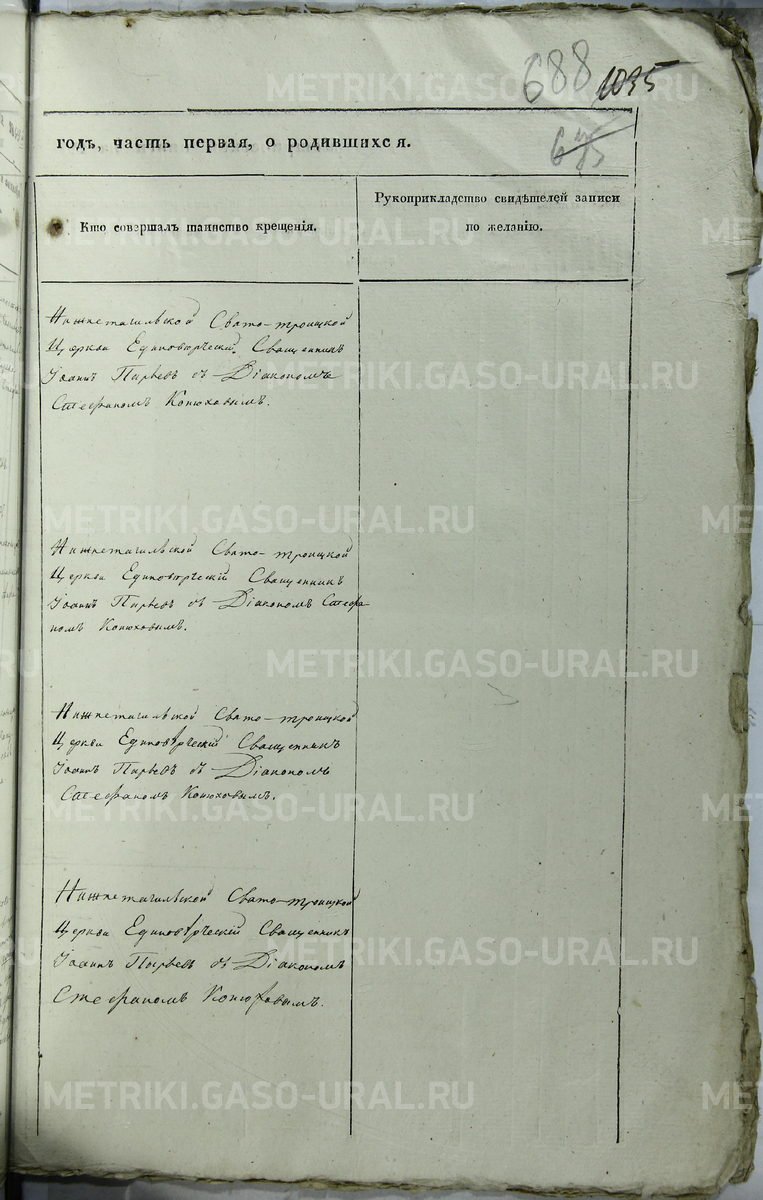 688 1035
годъ, часть первая, о родившихся.
Кто совершалъ таинство крещенія.
Рукоприкладство свидѣтелей записи
по желанію.
Нижнетагильской Свято-троицкой
Церкви Единовѣрческій Священникъ
Іоаннъ Пырьевъ съ Діакономъ
Стефаномъ Конюховымъ.
Нижнетагильской Свято-троицкой
Церкви Единовѣрческій Священникъ
Іоаннъ Пырьевъ съ Діакономъ Стефа-
номъ Конюховымъ.
Нижнетагильской Свято-троицкой
Церкви Единовѣрческій Священникъ
Іоаннъ Пырьевъ съ Діакономъ
Стефаномъ Конюховымъ.
Нижнетагильской Свято-троицкой
Церкви Единовѣрческій Священникъ
Іоаннъ Пырьевъ съ Діакономъ
Стефаномъ Конюховымъ.
METRIKI.GASO-URAL.RU